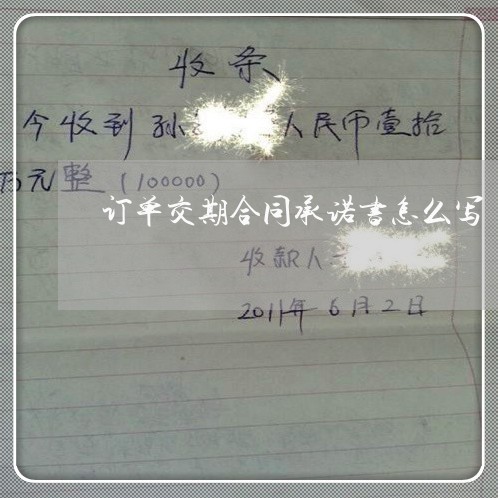 收条
今收到孙 人民币壹拾
万元整（100000）
订单交期合同承诺书怎么写
收款人
2011年6月2日